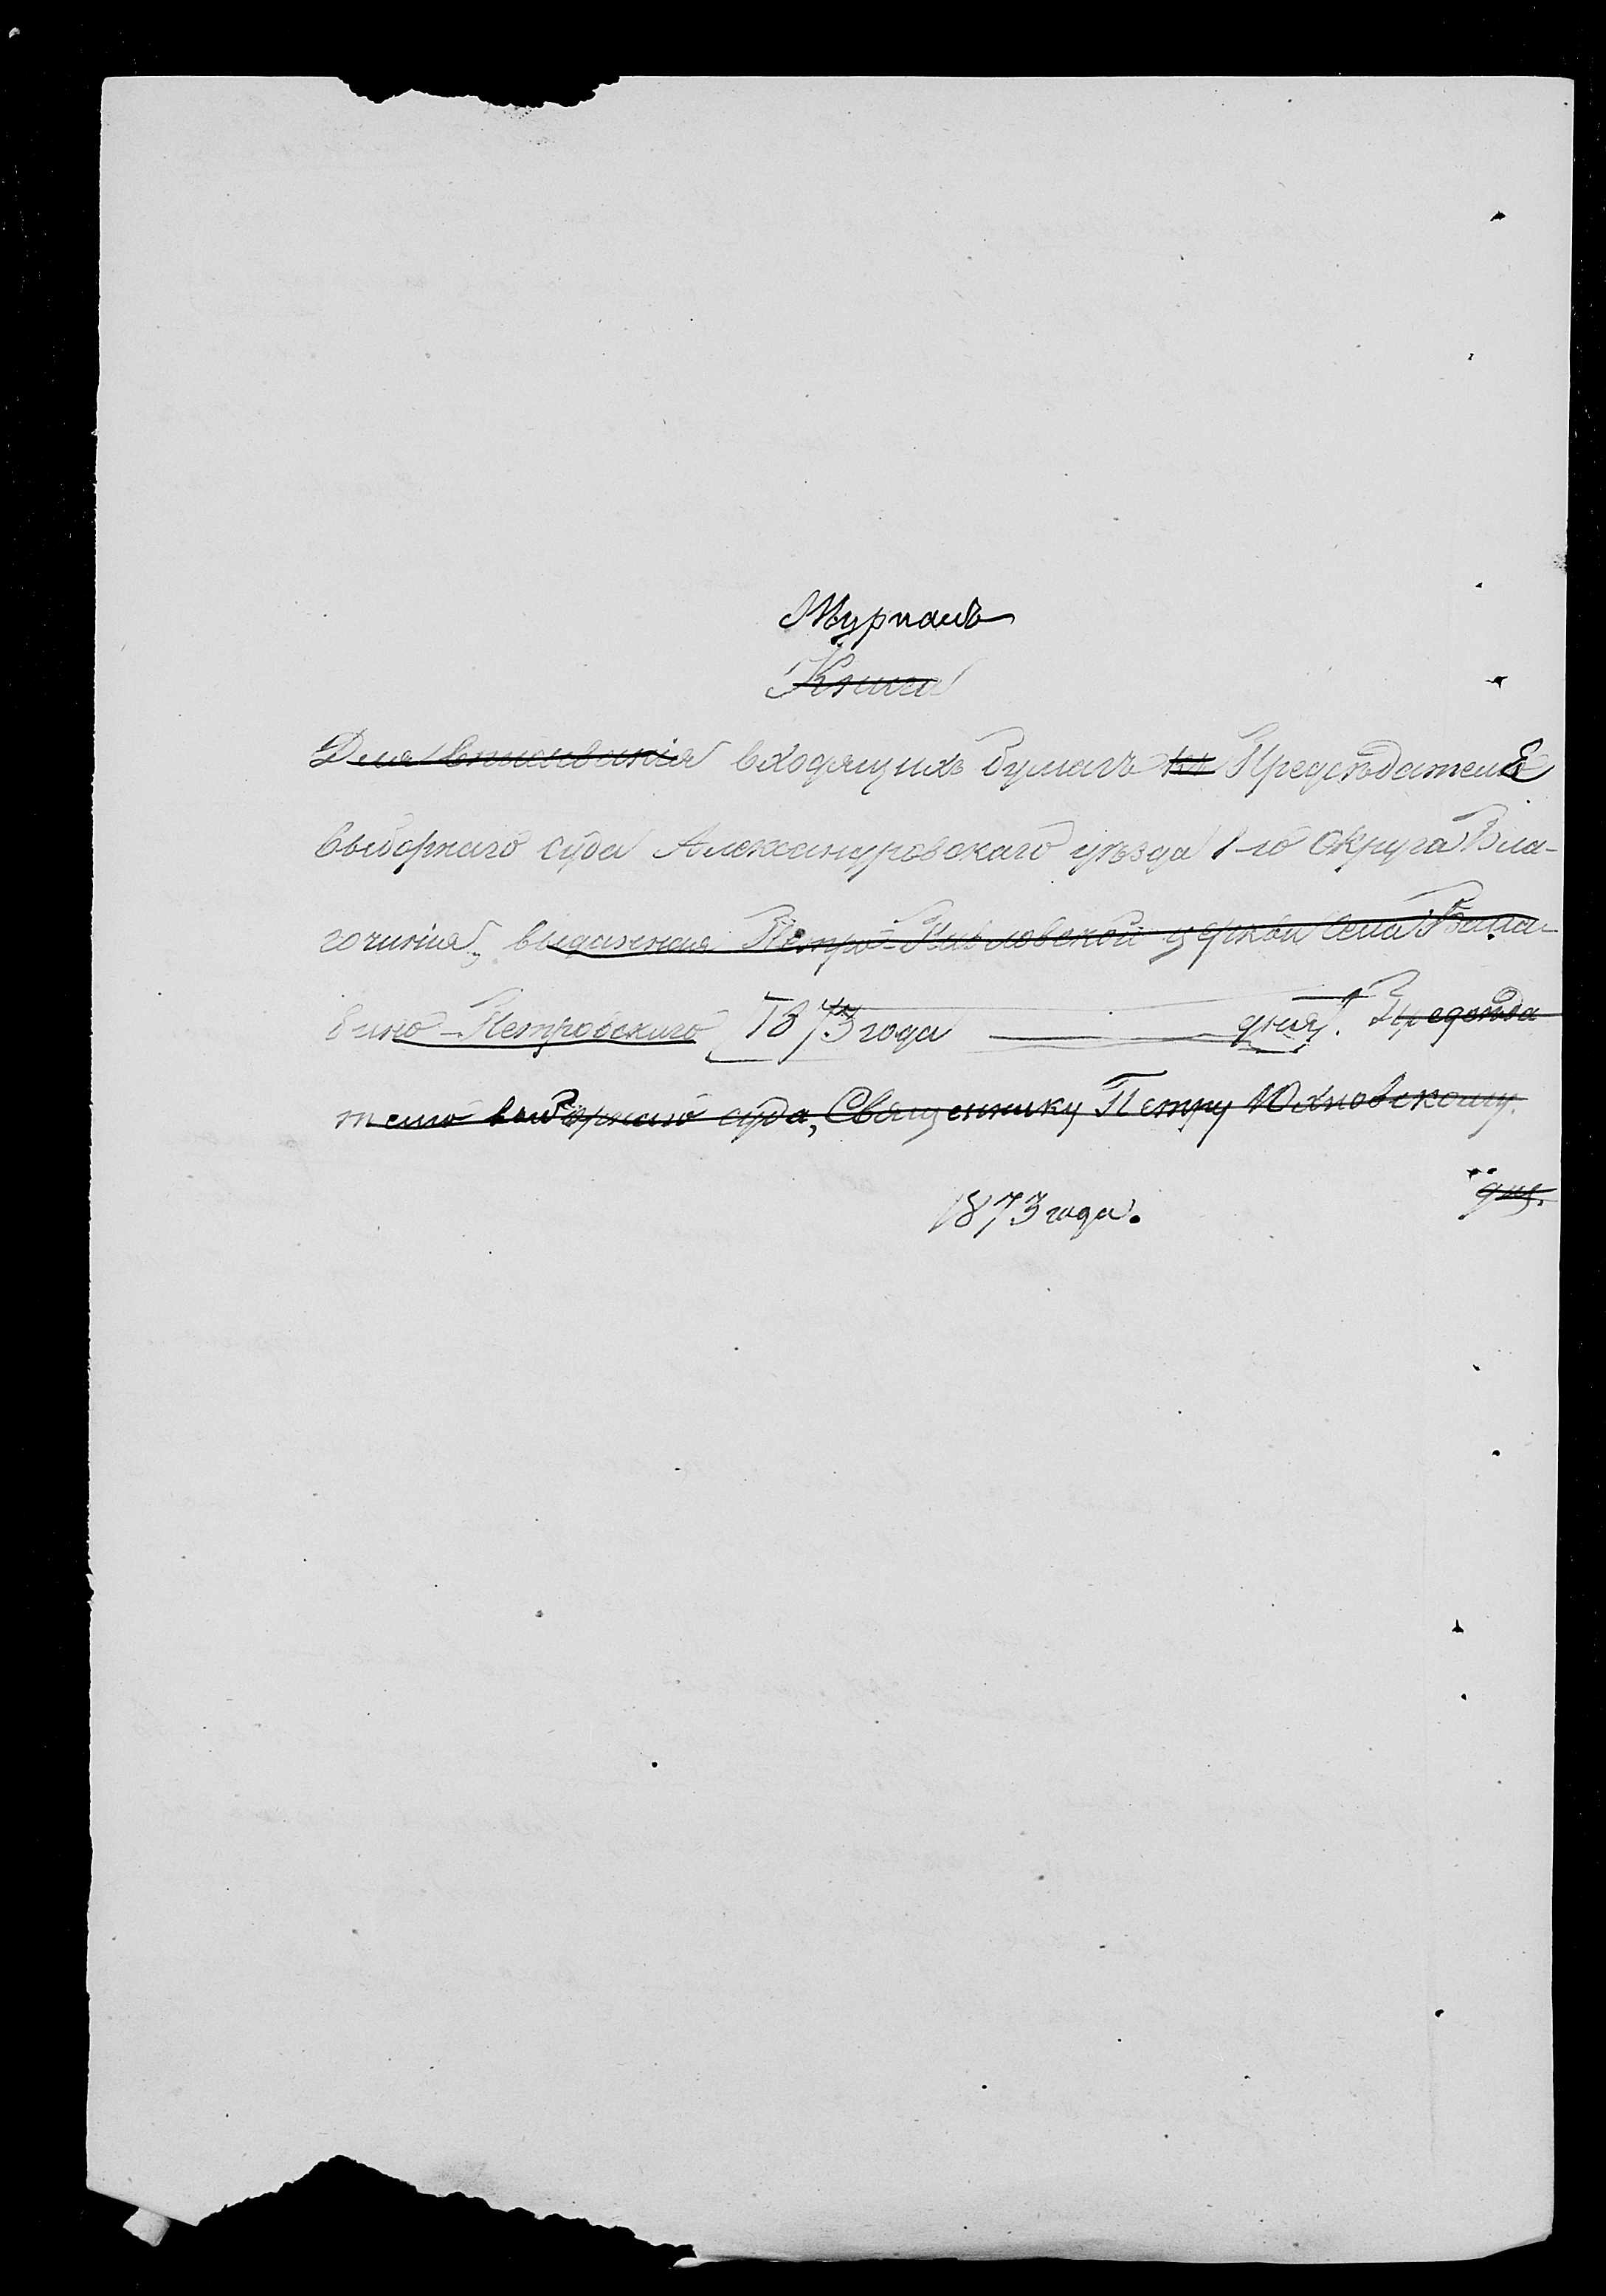 Журналъ
Книга
Для вписыванія входящихъ бумагъ къ Предсѣдателю
выборнаго суда Александровскаго уѣзда 1-го Округа Бла-
гочинія, выданная Петро-Павловской церкви Села
Петровскаго 1873 года дня. Предсѣда
телю выборнаго суда, Священнику Петру Юхновскому.
1873 года.